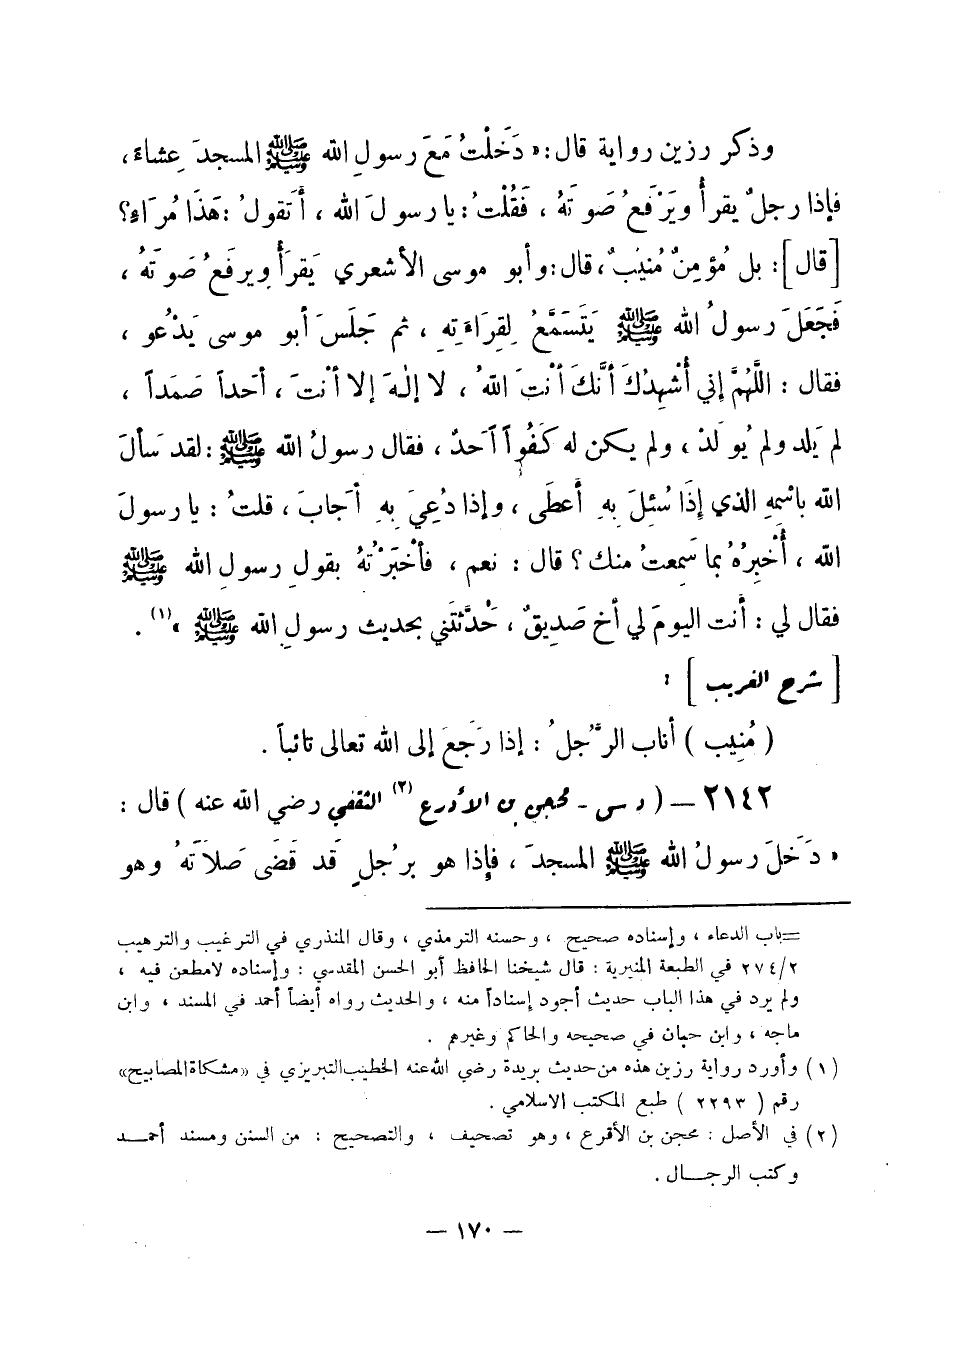 وذكر رزين رواية قال: « دَخَلْتُ مَعَ رسولِ الله ﷺ المسجدَ عِشاءً ،
فإذا رجلٌ يقرأُ ويَرْفَعُ صَوتَهُ ، فَقُلْتُ: يا رسولَ الله ، أَتقولُ: هَذَا مُراءٍ؟
[قال]: بل مُؤمِنٌ مُنيبٌ، قال: وأبو موسى الأشعري يَقرَأُ ويرفَعُ صَوتَهُ ،
فَجَعَلَ رسولُ الله ﷺ يَتَسَمَّعُ لِقِرَاءَتِهِ ، ثم جَلَسَ أبو موسى يَدْعو ،
فقال : اللَّهُمَّ إني أُشْهِدُكَ أَنَّكَ أنْتَ اللهُ ، لا إلهَ إلا أنْتَ ، أحَداً صَمَداً ،
لم يَلِد ولم يُولَدْ ، ولم يكن له كَفُواً أحَدٌ ، فقال رسولُ الله ﷺ : لقد سَألَ
الله باسْمِهِ الذي إذَا سُئِلَ بِهِ أعطَى ، وإذا دُعِيَ بِهِ أجابَ ، قلتُ : يا رسولَ
الله ، أُخْبِرُهُ بما سَمِعتُ منك ؟ قال : نعم ، فأخْبَرْتهُ بقولِ رسولِ الله ﷺ
فقال لي : أنت اليومَ لي أخ صَدِيقٌ ، حَدَّثتَني بحديث رسولِ الله ﷺ »(١) .
[ شرح الغريب ] :
( مُنِيب ) أناب الرَّجلُ : إذا رَجَعَ إلى الله تعالى تائباً .
٢١٤٢ – ( د س - محجن بن الأدرع (٢) الثقفي رضي الله عنه ) قال :
« دَخَلَ رسولُ الله ﷺ المسجدَ ، فإذا هو برجُلٍ قد قَضَى صَلاتَهُ وهو
= باب الدعاء ، وإسناده صحيح ، وحسنه الترمذي ، وقال المنذري في الترغيب والترهيب
٢٧٤/٢ في الطبعة المنيرية : قال شيخنا الحافظ أبو الحسن المقدسي : وإسناده لا مطعن فيه ،
ولم يرد في هذا الباب حديث أجود إسناداً منه ، والحديث رواه أيضاً أحمد في المسند ، وابن
ماجه ، وابن حبان في صحيحه والحاكم وغيرهم .
(١) وأورد رواية رزين هذه من حديث بريدة رضي الله عنه الخطيب التبريزي في «مشكاة المصابيح»
رقم ( ٢٢٩٣ ) طبع المكتب الاسلامي .
(٢) في الأصل : محجن بن الأقرع ، وهو تصحيف ، والتصحيح : من السنن ومسند أحمـــد
وكتب الرجـــال .
— ١٧٠ —